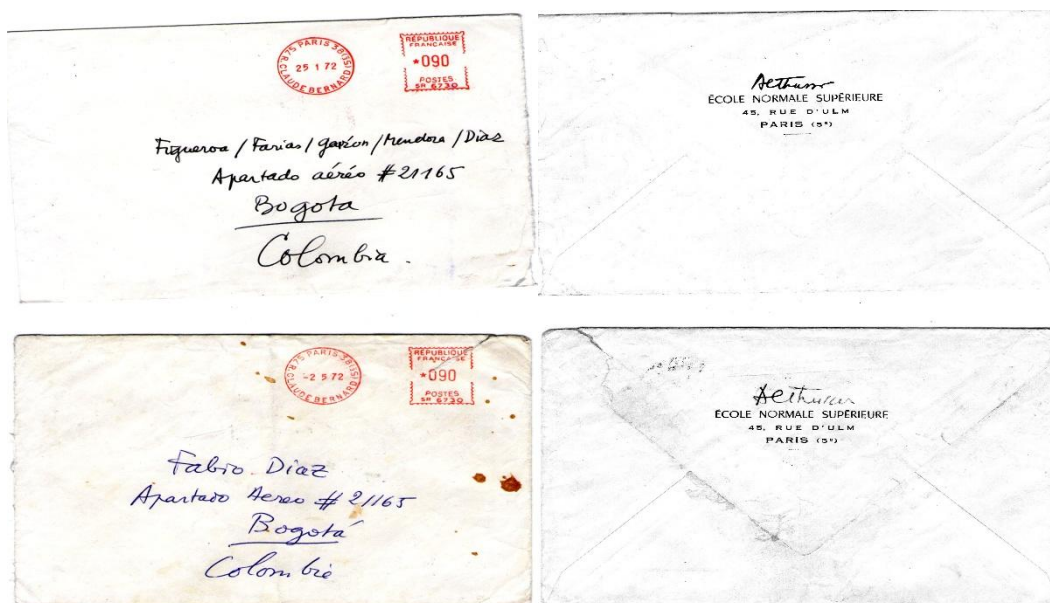 R. CLAUDE BERNARD 75 PARIS 38 (5E)
25 1 72
RÉPUBLIQUE
FRANÇAISE
*090
POSTES
SR 6730
Figueroa / Farias / Garzón / Mendoza / Diaz
Apartado aéréo # 21165
Bogota
Colombia.
Althusser
ÉCOLE NORMALE SUPÉRIEURE
45, RUE D'ULM
PARIS (5e)
R. CLAUDE BERNARD 75 PARIS 38 (5E)
-2 5 72
RÉPUBLIQUE
FRANÇAISE
*090
POSTES
SR 6730
Fabio Diaz
Apartado Aereo # 21165
Bogotá
Colombie
Althusser
ÉCOLE NORMALE SUPÉRIEURE
45, RUE D'ULM
PARIS (5e)